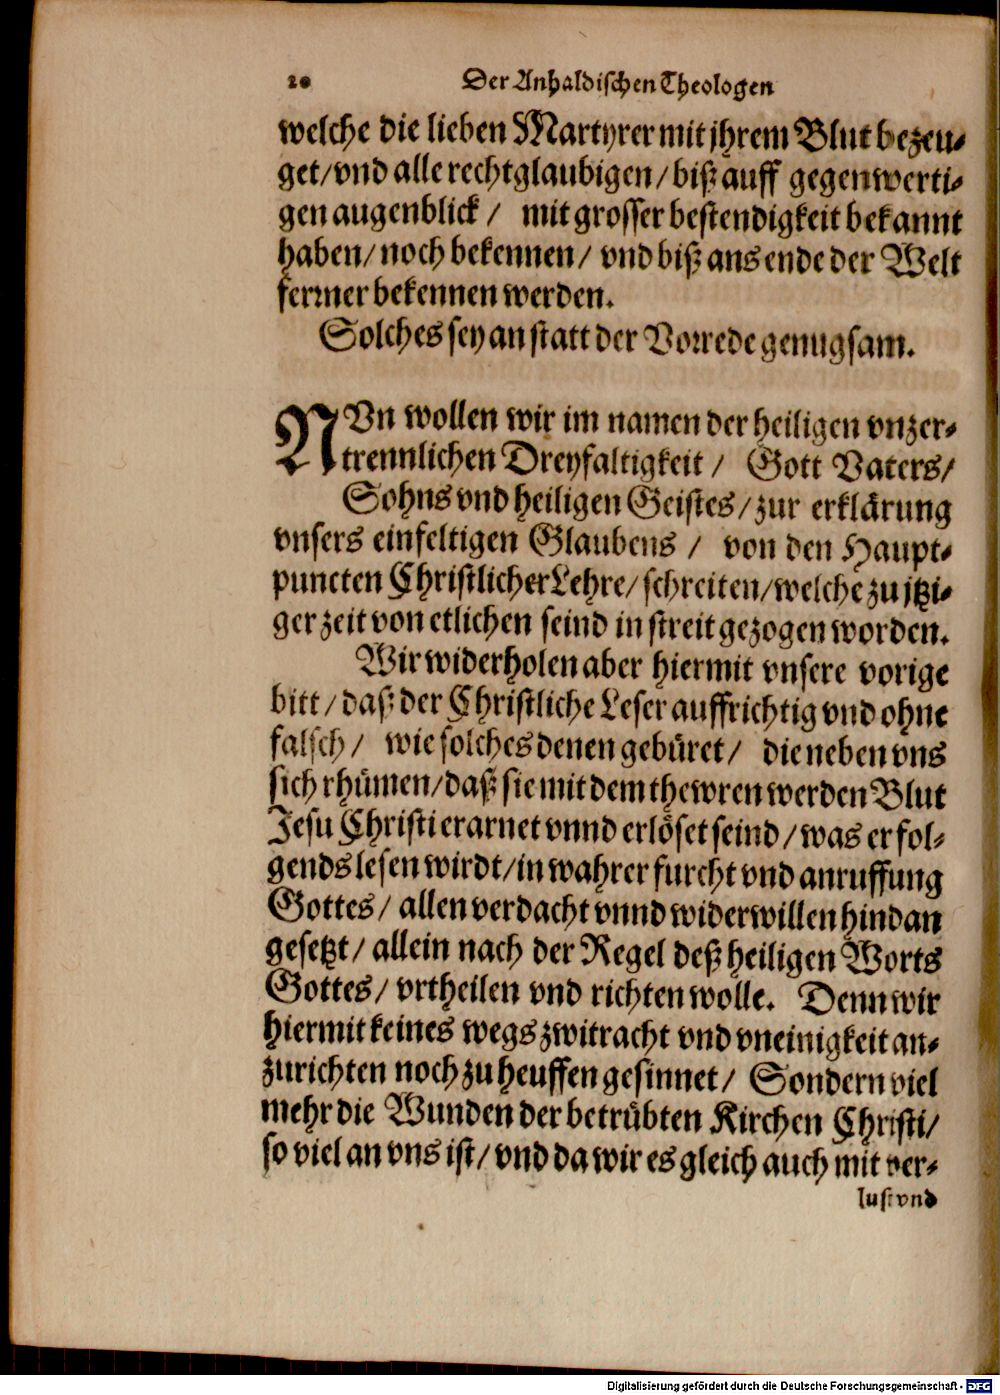 20 Der Anhaldischen Theologen
welche die lieben Martyrer mit jhrem Blut bezeu-
get/ vnd alle rechtglaubigen/ biß auff gegenwerti-
gen augenblick/ mit grosser bestendigkeit bekannt
haben/ noch bekennen/ vnd biß ans ende der Welt
ferrner bekennen werden.
Solches sey an statt der Vorrede genugsam.
NVn wollen wir im namen der heiligen vnzer-
trennlichen Dreyfaltigkeit/ Gott Vaters/
Sohns vnd heiligen Geistes/ zur erklärung
vnsers einfeltigen Glaubens/ von den Haupt-
puncten Christlicher Lehre/ schreiten/ welche zu jtzi-
ger zeit von etlichen seind in streit gezogen worden.
Wir widerholen aber hiermit vnsere vorige
bitt/ daß der Christliche Leser auffrichtig vnd ohne
falsch/ wie solches denen gebüret/ die neben vns
sich rhümen/ daß sie mit dem thewren werden Blut
Jesu Christi erarnet vnnd erlöset seind/ was er fol-
gends lesen wirdt/ in wahrer furcht vnd anruffung
Gottes/ allen verdacht vnnd widerwillen hindan
gesetzt/ allein nach der Regel deß heiligen Worts
Gottes/ vrtheilen vnd richten wolle. Denn wir
hiermit keines wegs zwitracht vnd vneinigkeit an-
zurichten noch zu heuffen gesinnet/ Sondern viel
mehr die Wunden der betrübten Kirchen Christi/
so viel an vns ist/ vnd da wir es gleich auch mit ver-
lust vnd
Digitalisierung gefördert durch die Deutsche Forschungsgemeinschaft - DFG